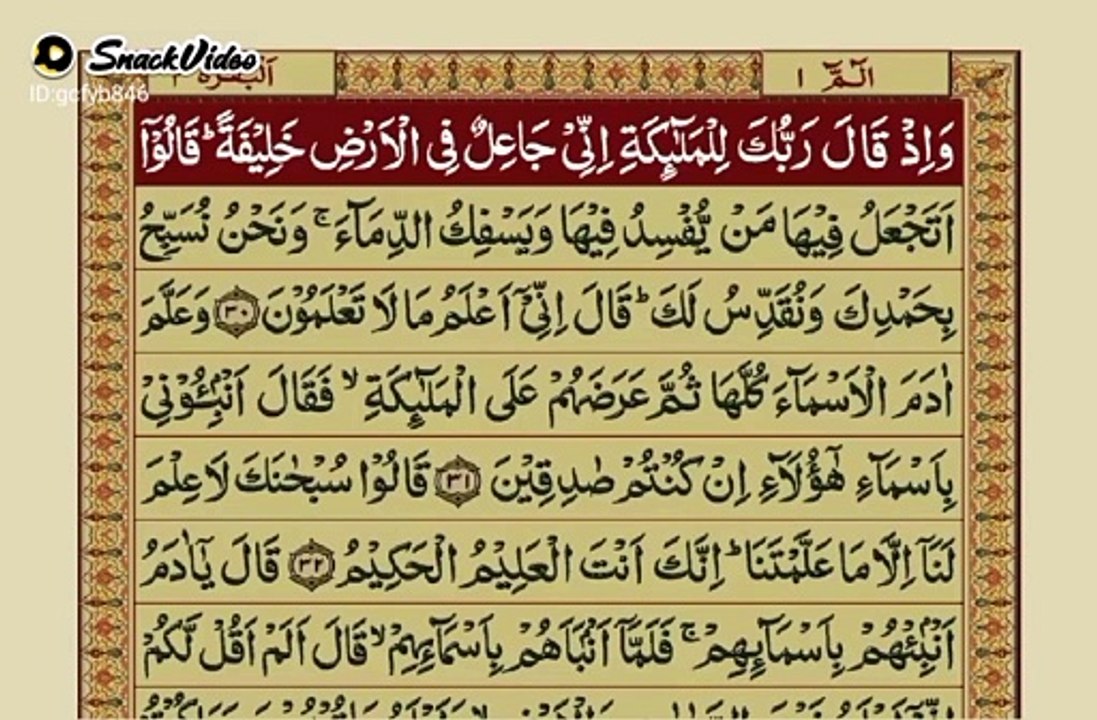 SnackVideo
ID:gcfyb846
الٓمّٓ ١
البقرة ٢
وَاِذْ قَالَ رَبُّكَ لِلْمَلٰٓئِكَةِ اِنِّىْ جَاعِلٌ فِى الْاَرْضِ خَلِيْفَةً ؕ قَالُوْٓا
اَتَجْعَلُ فِيْهَا مَنْ يُّفْسِدُ فِيْهَا وَيَسْفِكُ الدِّمَآءَ ۚ وَنَحْنُ نُسَبِّحُ
بِحَمْدِكَ وَنُقَدِّسُ لَكَ ؕ قَالَ اِنِّىْٓ اَعْلَمُ مَا لَا تَعْلَمُوْنَ ﴿٣٠﴾ وَعَلَّمَ
اٰدَمَ الْاَسْمَآءَ كُلَّهَا ثُمَّ عَرَضَهُمْ عَلَى الْمَلٰٓئِكَةِ ۙ فَقَالَ اَنْۢبِـُٔوْنِىْ
بِاَسْمَآءِ هٰٓؤُلَآءِ اِنْ كُنْتُمْ صٰدِقِيْنَ ﴿٣١﴾ قَالُوْا سُبْحٰنَكَ لَا عِلْمَ
لَنَآ اِلَّا مَا عَلَّمْتَنَا ؕ اِنَّكَ اَنْتَ الْعَلِيْمُ الْحَكِيْمُ ﴿٣٢﴾ قَالَ يٰٓاٰدَمُ
اَنْۢبِئْهُمْ بِاَسْمَآئِهِمْ ۚ فَلَمَّآ اَنْۢبَاَهُمْ بِاَسْمَآئِهِمْ ۙ قَالَ اَلَمْ اَقُلْ لَّكُمْ